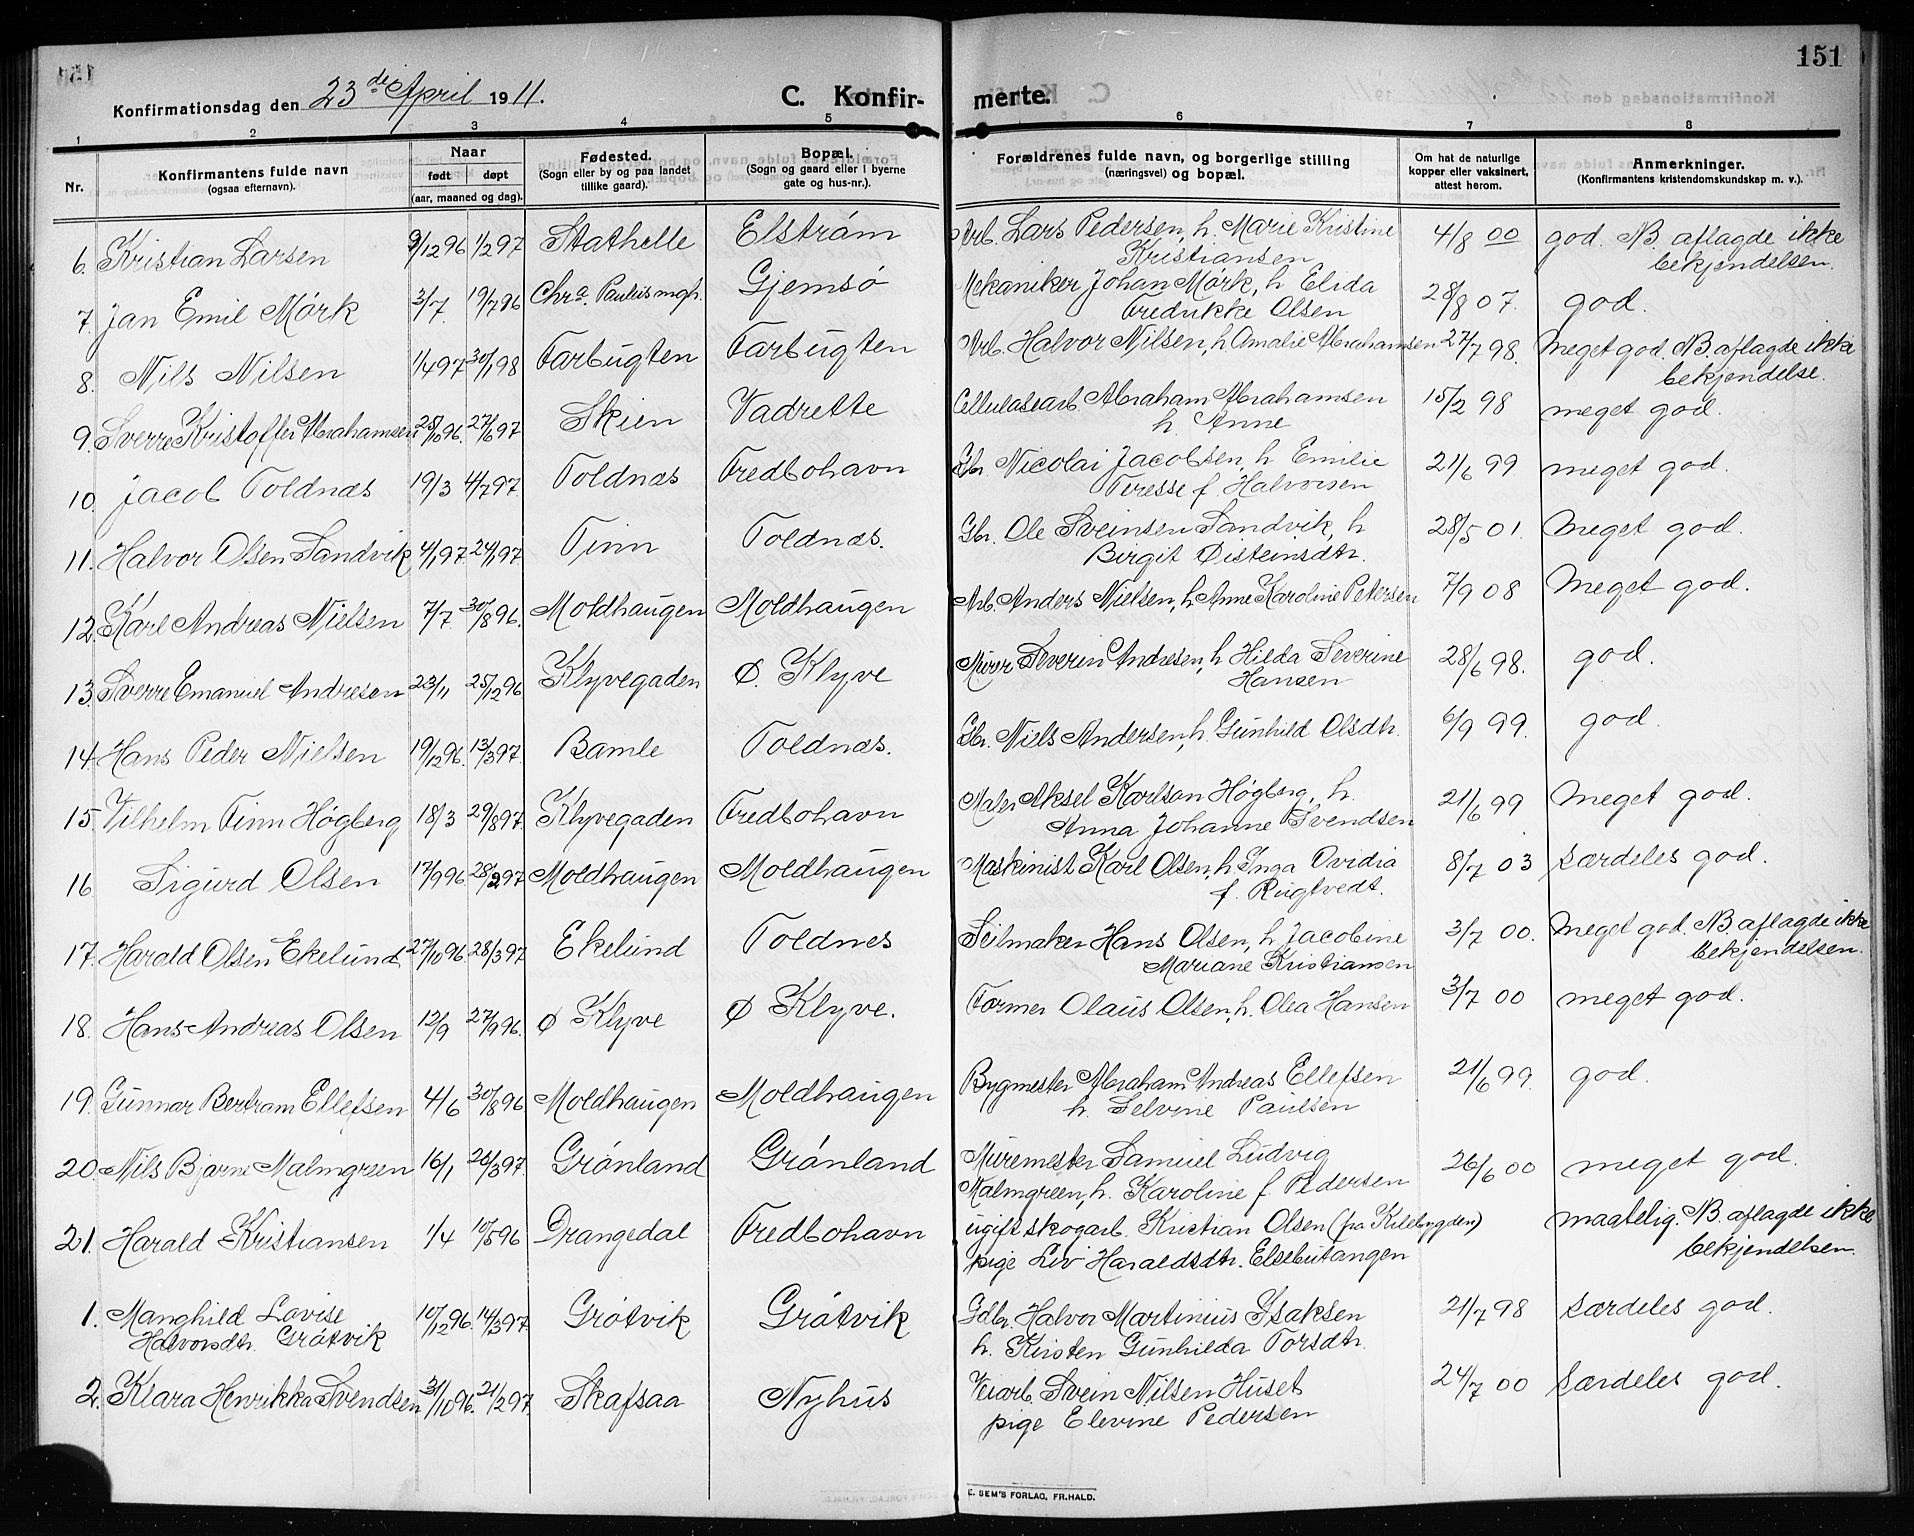 151
Konfirmationsdag den 23de April 1911.
C. Konfir- merte.
1 2 3 4 5 6 7 8
Nr.
Konfirmantens fulde navn
(ogsaa efternavn).
Naar
født døpt
(aar, maaned og dag).
Fødested.
(Sogn eller by og paa landet
tillike gaard).
Bopæl.
(Sogn og gaard eller i byerne
gate og hus-nr.).
Forældrenes fulde navn, og borgerlige stilling
(næringsvei) og bopæl.
Om hat de naturlige
kopper eller vaksinert,
attest herom.
Anmerkninger.
(Konfirmantens kristendomskundskap m. v.).
6. Kristian Larsen 9/12 96 1/2 97 Stathelle Elstrøm Arb. Lars Pedersen, h. Marie Kristine 4/8 00 god. NB. aflagde ikke
Kristiansen bekjendelsen.
7. Jan Emil Mørk 3/7. 19/7 96 Chra. Paulus mgh. Gjemsø Mekaniker Johan Mørk, h Elida 28/8 07. god.
Fredrikke Olsen
8. Nils Nilsen 1/4 97 30/1 98 Farbugten Farbugten Arb. Halvor Nilsen, h Amalie Abrahamsen 27/7 98. Meget god. NB. aflagde ikke
bekjendelse.
9. Sverre Kristoffer Abrahamsen 25/10 96. 27/6 97 Skien Vadrette Cellulosearb. Abraham Abrahamsen 15/2 98 meget god.
h. Anne
10. Jacob Toldnæs 19/3 4/7 97 Toldnæs Fredbohavn Gbr. Nicolai Jacobsen, h Emilie 21/6 99 meget god.
Teresse f. Halvorsen
11. Halvor Olsen Sandvik 4/1 97 24/1 97 Tinn Toldnæs. Gbr. Ole Sveinsen Sandvik, h 28/5 01. Meget god.
Birgit Øisteinsdtr.
12. Karl Andreas Nielsen 7/7 30/8 96. Moldhaugen Moldhaugen Arb. Anders Nielsen, h Anne Karoline Petersen 7/9 08 Meget god.
13. Sverre Emanuel Andresen 23/11 25/12 96 Klyvegaden Ø. Klyve Murer Severin Andresen, h Hilda Severine 28/6 98. god.
Hansen
14. Hans Peder Nielsen 19/12 96. 13/3 97. Bamle Toldnæs. Gbr. Niels Andersen, h Gunhild Olsdtr. 6/9 99. god.
15. Vilhelm Finn Høgberg 18/3 29/8 97. Klyvegaden Fredbohavn Maler Aksel Karlson Høgberg, h. 21/6 99 Meget god.
Anna Johanne Svendsen
16 Sigurd Olsen 17/9 96 28/2 97 Moldhaugen Moldhaugen Maskinist Karl Olsen, h. Inga Ovidia 8/7 03 særdeles god.
f. Rugtvedt.
17. Harald Olsen Ekelund 27/10 96 28/3 97 Ekelund Toldnes Seilmaker Hans Olsen, h Jacobine 3/7 00. Meget god. NB. aflagde ikke
Mariane Kristiansen bekjendelsen.
18. Hans Andreas Olsen 12/9 27/9 96. Ø Klyve Ø Klyve. Former Olaus Olsen, h. Olea Hansen 3/7 00 meget god.
19. Gunnar Bertram Ellefsen 4/6 30/8 96 Moldhaugen Moldhaugen Bygmester Abraham Andreas Ellefsen 21/6 99. god.
h. Selvine Paulsen
20. Nils Bjarne Malmgreen 16/1 28/3 97. Grønland Grønland Muremester Samuel Ludvig 26/6 00 meget god.
Malmgreen, h. Karoline f Pedersen
21. Harald Kristiansen 1/4 10/5 96 Drangedal Fredbohavn ugift skogarb. Kristian Olsen (fra Kilebygden) maatelig. NB. aflagde ikke
pige Liv Haraldsdtr. Elsebutangen bekjendelsen.
1. Manghild Lovise 10/12 96. 14/3 97. Grøtvik Grøtvik Gdbr. Halvor Martinius Isaksen 21/7 98 særdeles god.
Halvorsdtr. Grøtvik h. Kirsten Gunhilda Torsdtr.
2. Klara Henrikka Svendsen 31/10 96. 21/2 97. Skafsaa Nyhus Veiarb. Svein Nilsen Huset 24/7 00 særdeles god.
pige Elevine Pedersen
E. SEM'S FORLAG, FR.HALD.